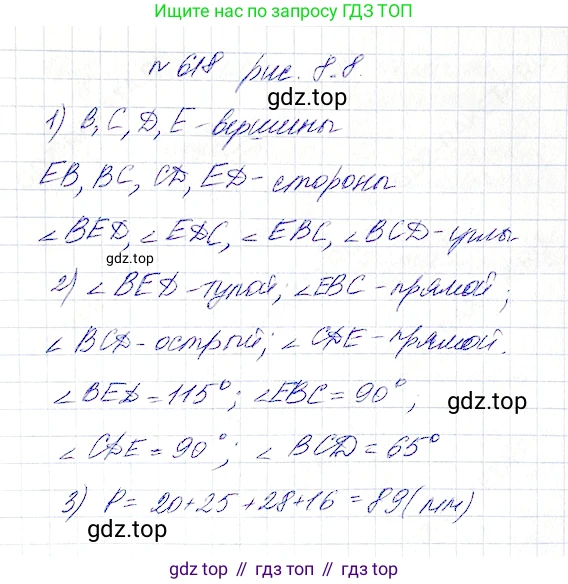 Ищите нас по запросу ГДЗ ТОП
№ 618 рис. 8.8
gdz.top
1) B, C, D, E - вершины
EB, BC, CD, ED - стороны
∠BED, ∠EDC, ∠EBC, ∠BCD - углы
gdz.top
2) ∠BED - тупой; ∠EBC - прямой;
∠BCD - острый; ∠CDE - прямой.
∠BED = 115°; ∠EBC = 90°,
gdz.top
∠CDE = 90°; ∠BCD = 65°
3) P = 20+25+28+16 = 89 (мм)
gdz.top
gdz.top // gdz.top // gdz.top